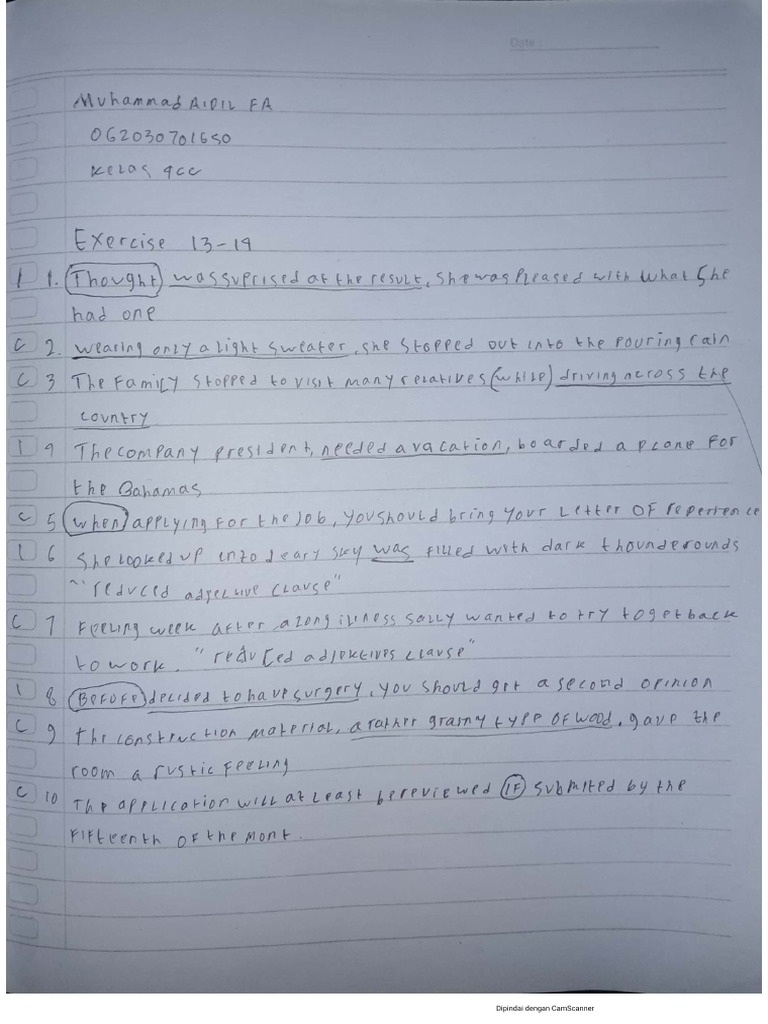 Date :
Muhammad AIDIL FA
062030701650
Kelas 4CC
Exercise 13-14
I 1. Thought was suprised at the result, she was pleased with what she
had one
C 2. wearing only a light sweater, she stopped out into the pouring rain
C 3 The Family stopped to visit many relatives (while) driving across the
country
I 4 The company president, needed a vacation, boarded a plane for
the Bahamas
C 5 (when) applying for the job, you should bring your letter of
I 6 She looked up into sky was filled with dark
"reduced adjective clause"
C 7 Feeling week after a long illness sally wanted to try to get back
to work. "reduced adjektives clause"
I 8 Before decided to have surgery, you should get a second opinion
C 9 The construction material, a rather grainy type of wood, gave the
room a rustic feeling
C 10 The application will at least be reviewed IF submited by the
fifteenth of the mont.
Dipindai dengan CamScanner